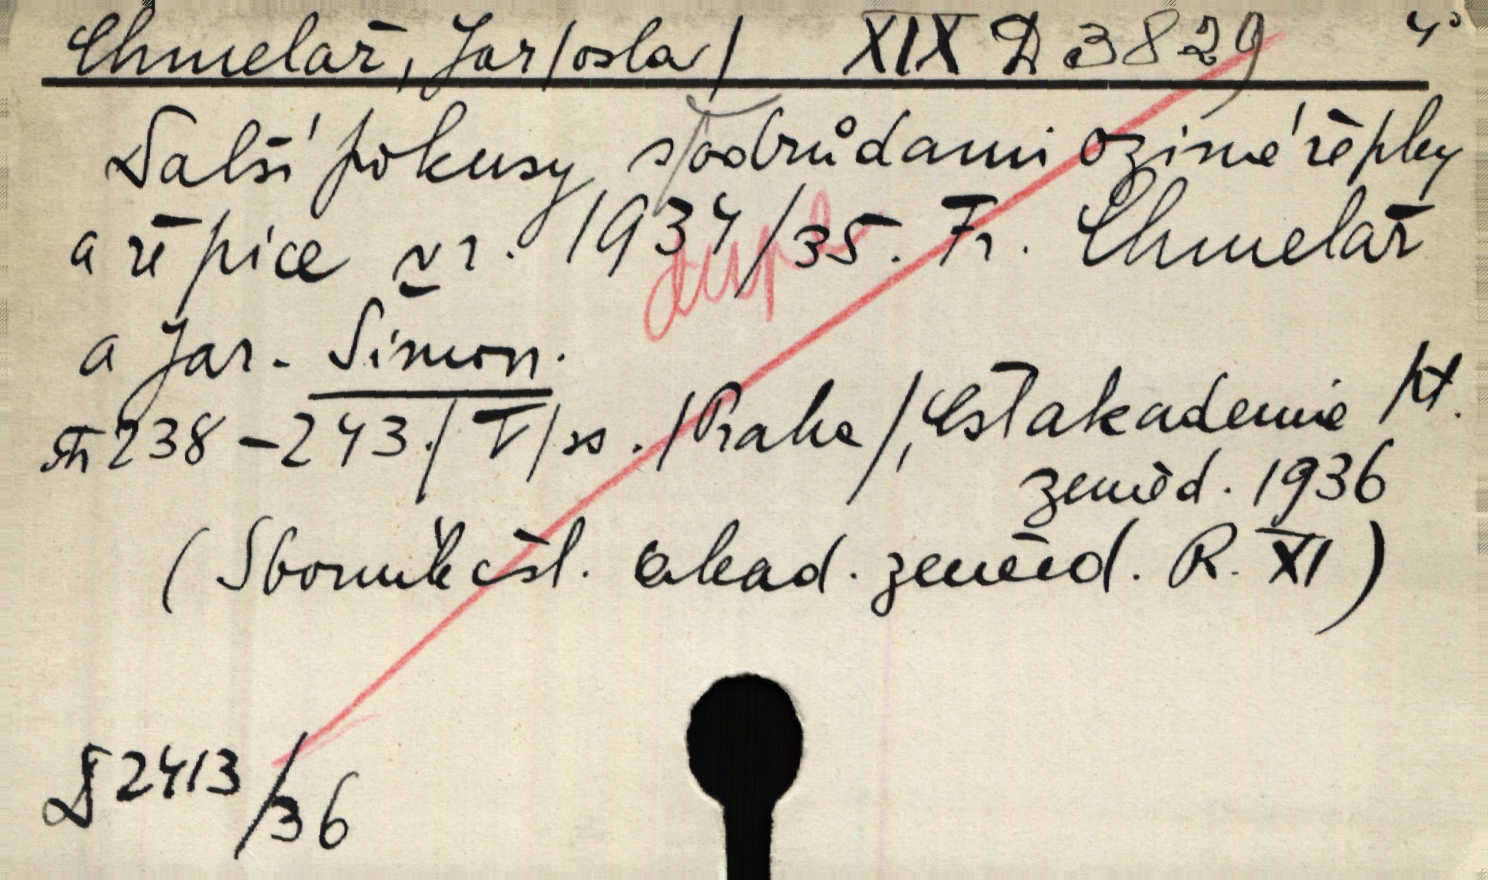 Chmelař, Jar/oslav/ XIX D 3829 4°
Další pokusy s odrůdami ozimé řepky
a řepice v r. 1934/35. Fr. Chmelař
dupl
a Jar. Šimon.
Str 238-243./V/ss./Praha/, Čsl akademie /kt.
zeměd. 1936
(Sborník čsl. akad. zeměd. R. XI)
§ 2413/36